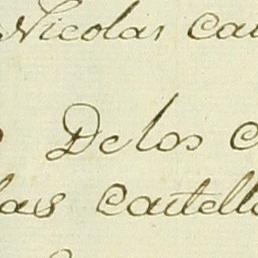 Nicolas Ca
Delos C
las Castell